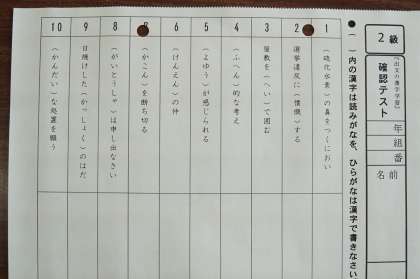 2級
「出文の漢字学習」
確認テスト
年 組 番
名前
●( )内の漢字は読みがなを、ひらがなは漢字で書きなさい
1
(硫化水素)の鼻をつくにおい
2
選挙違反に(憤慨)する
3
屋敷を(へい)で囲む
4
(ふへん)的な考え
5
(よゆう)が感じられる
6
(けんえん)の仲
(かこん)を断ち切る
8
(がいとうしゃ)は申し出なさい
9
日焼けした(かっしょく)のはだ
10
(かんだい)な処置を願う